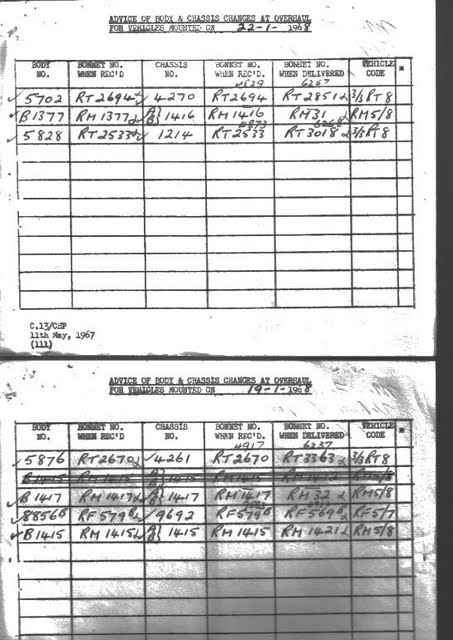 ADVICE OF BODY & CHASSIS CHANGES AT OVERHAUL
FOR VEHICLES MOUNTED ON 22-1-1968
BODY NO. BONNET NO. WHEN REC'D CHASSIS NO. BONNET NO. WHEN REC'D. BONNET NO. WHEN DELIVERED VEHICLE CODE *
4529 6257
✓5702 RT2694 ✓4270 RT2694 RT2851 3/3RT8
✓B1377 RM1377 1416 RM1416 RM31 RM5/8
4873 6268
✓5828 RT2533 1214 RT2533 RT3018 3/3RT8
C.13/CHP
11th May, 1967
(111)
ADVICE OF BODY & CHASSIS CHANGES AT OVERHAUL
FOR VEHICLES MOUNTED ON 19-1-1968
BODY NO. BONNET NO. WHEN REC'D CHASSIS NO. BONNET NO. WHEN REC'D. BONNET NO. WHEN DELIVERED VEHICLE CODE *
4917 6237
✓5876 RT2670 ✓4261 RT2670 RT3363 3/3RT8
B1415 RM1415 1415 RM1415 RM5/8
✓B1417 RM1417 1417 RM1417 RM32 RM5/8
✓8856B RF579B ✓9692 RF579B RF569B RF5/7
✓B1415 RM1415 1415 RM1415 RM1421 RM5/8